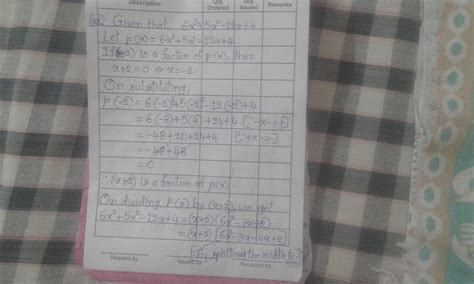 Description
Qty. Ordered
Qty. Issued
Remarks
Sol: Given that, 6x³+5x²-12x+4
Let p(x)=6x³+5x²-12x+4
If (x+2) is a factor of p(x), then
x+2=0 ⇒ x=-2
On substituting,
p(-2) = 6(-2)³+5(-2)²-12(-2)+4
= 6(-8)+5(4)+24+4 [∵ -x-=+]
= -48+20+24+4 [∵ +x-=-]
= -48+48
= 0
∴ (x+2) is a factor of p(x)
On dividing p(x) by (x+2), we get
6x³+5x²-12x+4 = (x+2)(6x²-7x+2)
= (x+2)[6x²-3x-4x+2]
[∵ By splitting the middle
Request by
Issued by
Received by